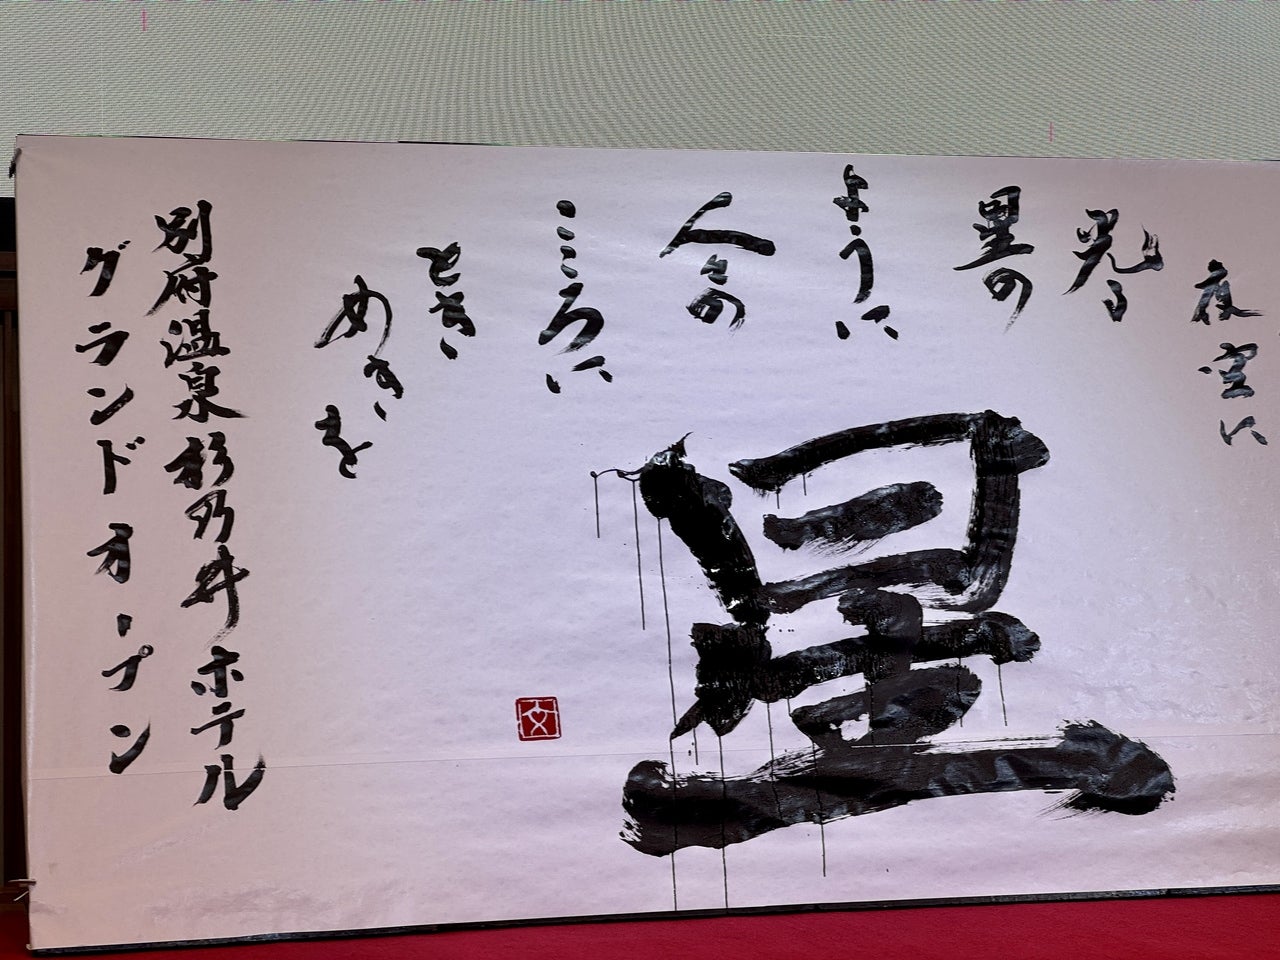 夜空に
光る
星の
ように
人々の
こころに
ときめきを
星
別府温泉杉乃井ホテル
グランドオープン
文